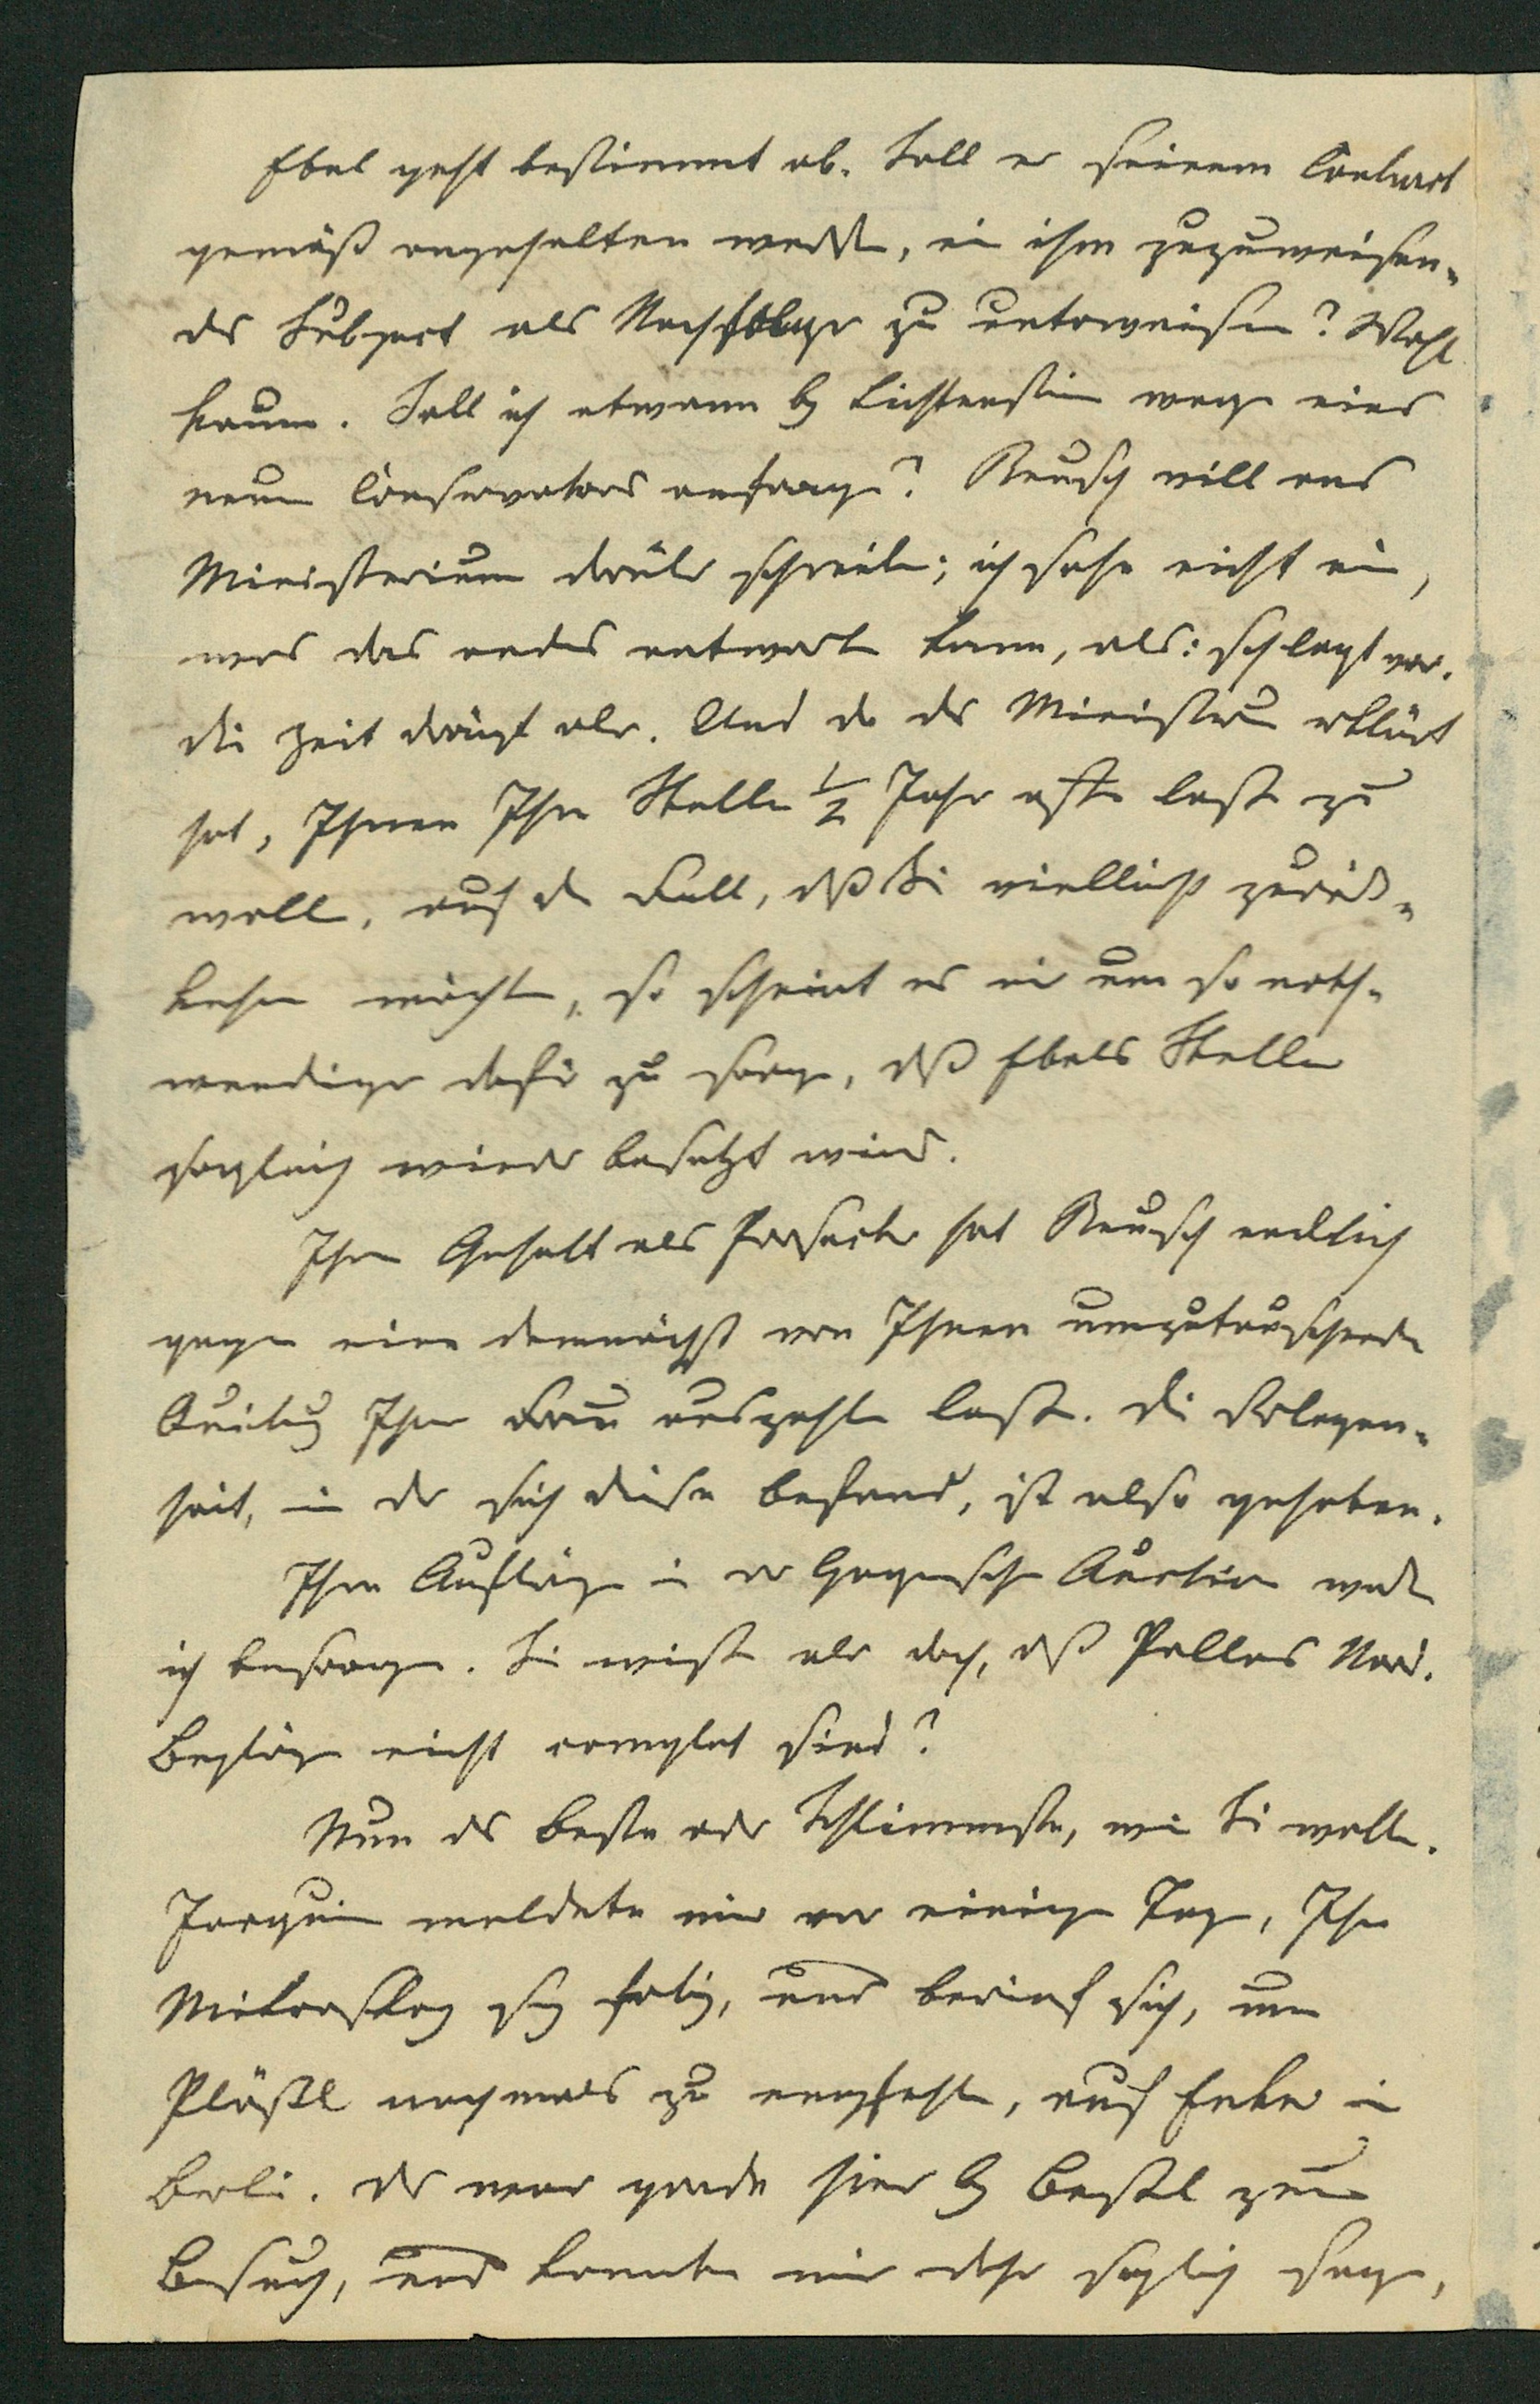 Ebel geht bestimmt ab. Soll er seinem Contract
gemäß angehalten werden, ein ihm zuzuweisen-
des Subject als Nachfolger zu unterweisen? Wohl
kaum. Soll ich etwann bey Lichtenstein wegen eines
neuen Conservators anfragen? Reusch will ans
Ministerium darüber schreiben; ich sehe nicht ein,
was das anders antworten kann, als: schlagt vor.
die Zeit drängt aber. Und da das Ministerium erklärt
hat, Ihnen Ihre Stelle ½ Jahr offen lassen zu
wollen, auf den Fall, daß Sie vielleicht zurück-
kehren möchten, so scheint es mir um so noth-
wendiger dafür zu sorgen, daß Ebels Stelle
sogleich wieder besetzt wird.
Ihren Gehalt als Prosector hat Reusch endlich
gegen eine demnächst von Ihnen umzutauschende
Quitung Ihrer Frau auszahlen lassen. Die Verlegen-
heit, in der sich diese befand, ist also gehoben.
Ihre Aufträge in der Hagenschen Auction werde
ich besorgen. Sie wissen aber doch, daß Pallas Nord.
Beyträge nicht complet sind?
Nun das Beste oder Schlimmste, wie Sie wollen.
Jacquin meldete mir vor einigen Tagen, Ihr
Mikroskop sey fertig, und berief sich, um
Plößl nochmals zu empfehlen, auf Enke in
Berlin. der war grade hier bey Bessel zum
Besuch, und konnte mir daher sogleich sagen,